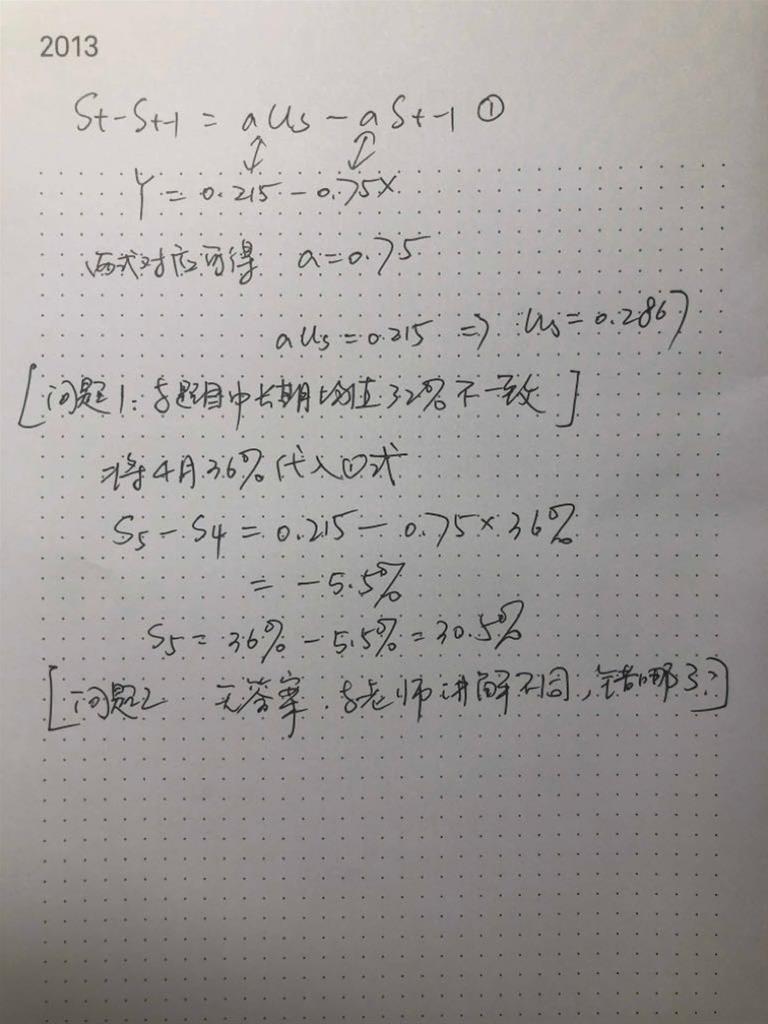 2013
St-St-1 = aUs - aSt-1 ①
Y = 0.215 - 0.75X
两式对应可得 a=0.75
aUs=0.215 => Us=0.2867
[问题1:与题目中长期均值32%不一致]
将4月36%代入①式
S5-S4 = 0.215 - 0.75×36%
= -5.5%
S5 = 36% - 5.5% = 30.5%
[问题2 无答案.与老师讲解不同,错哪了?]